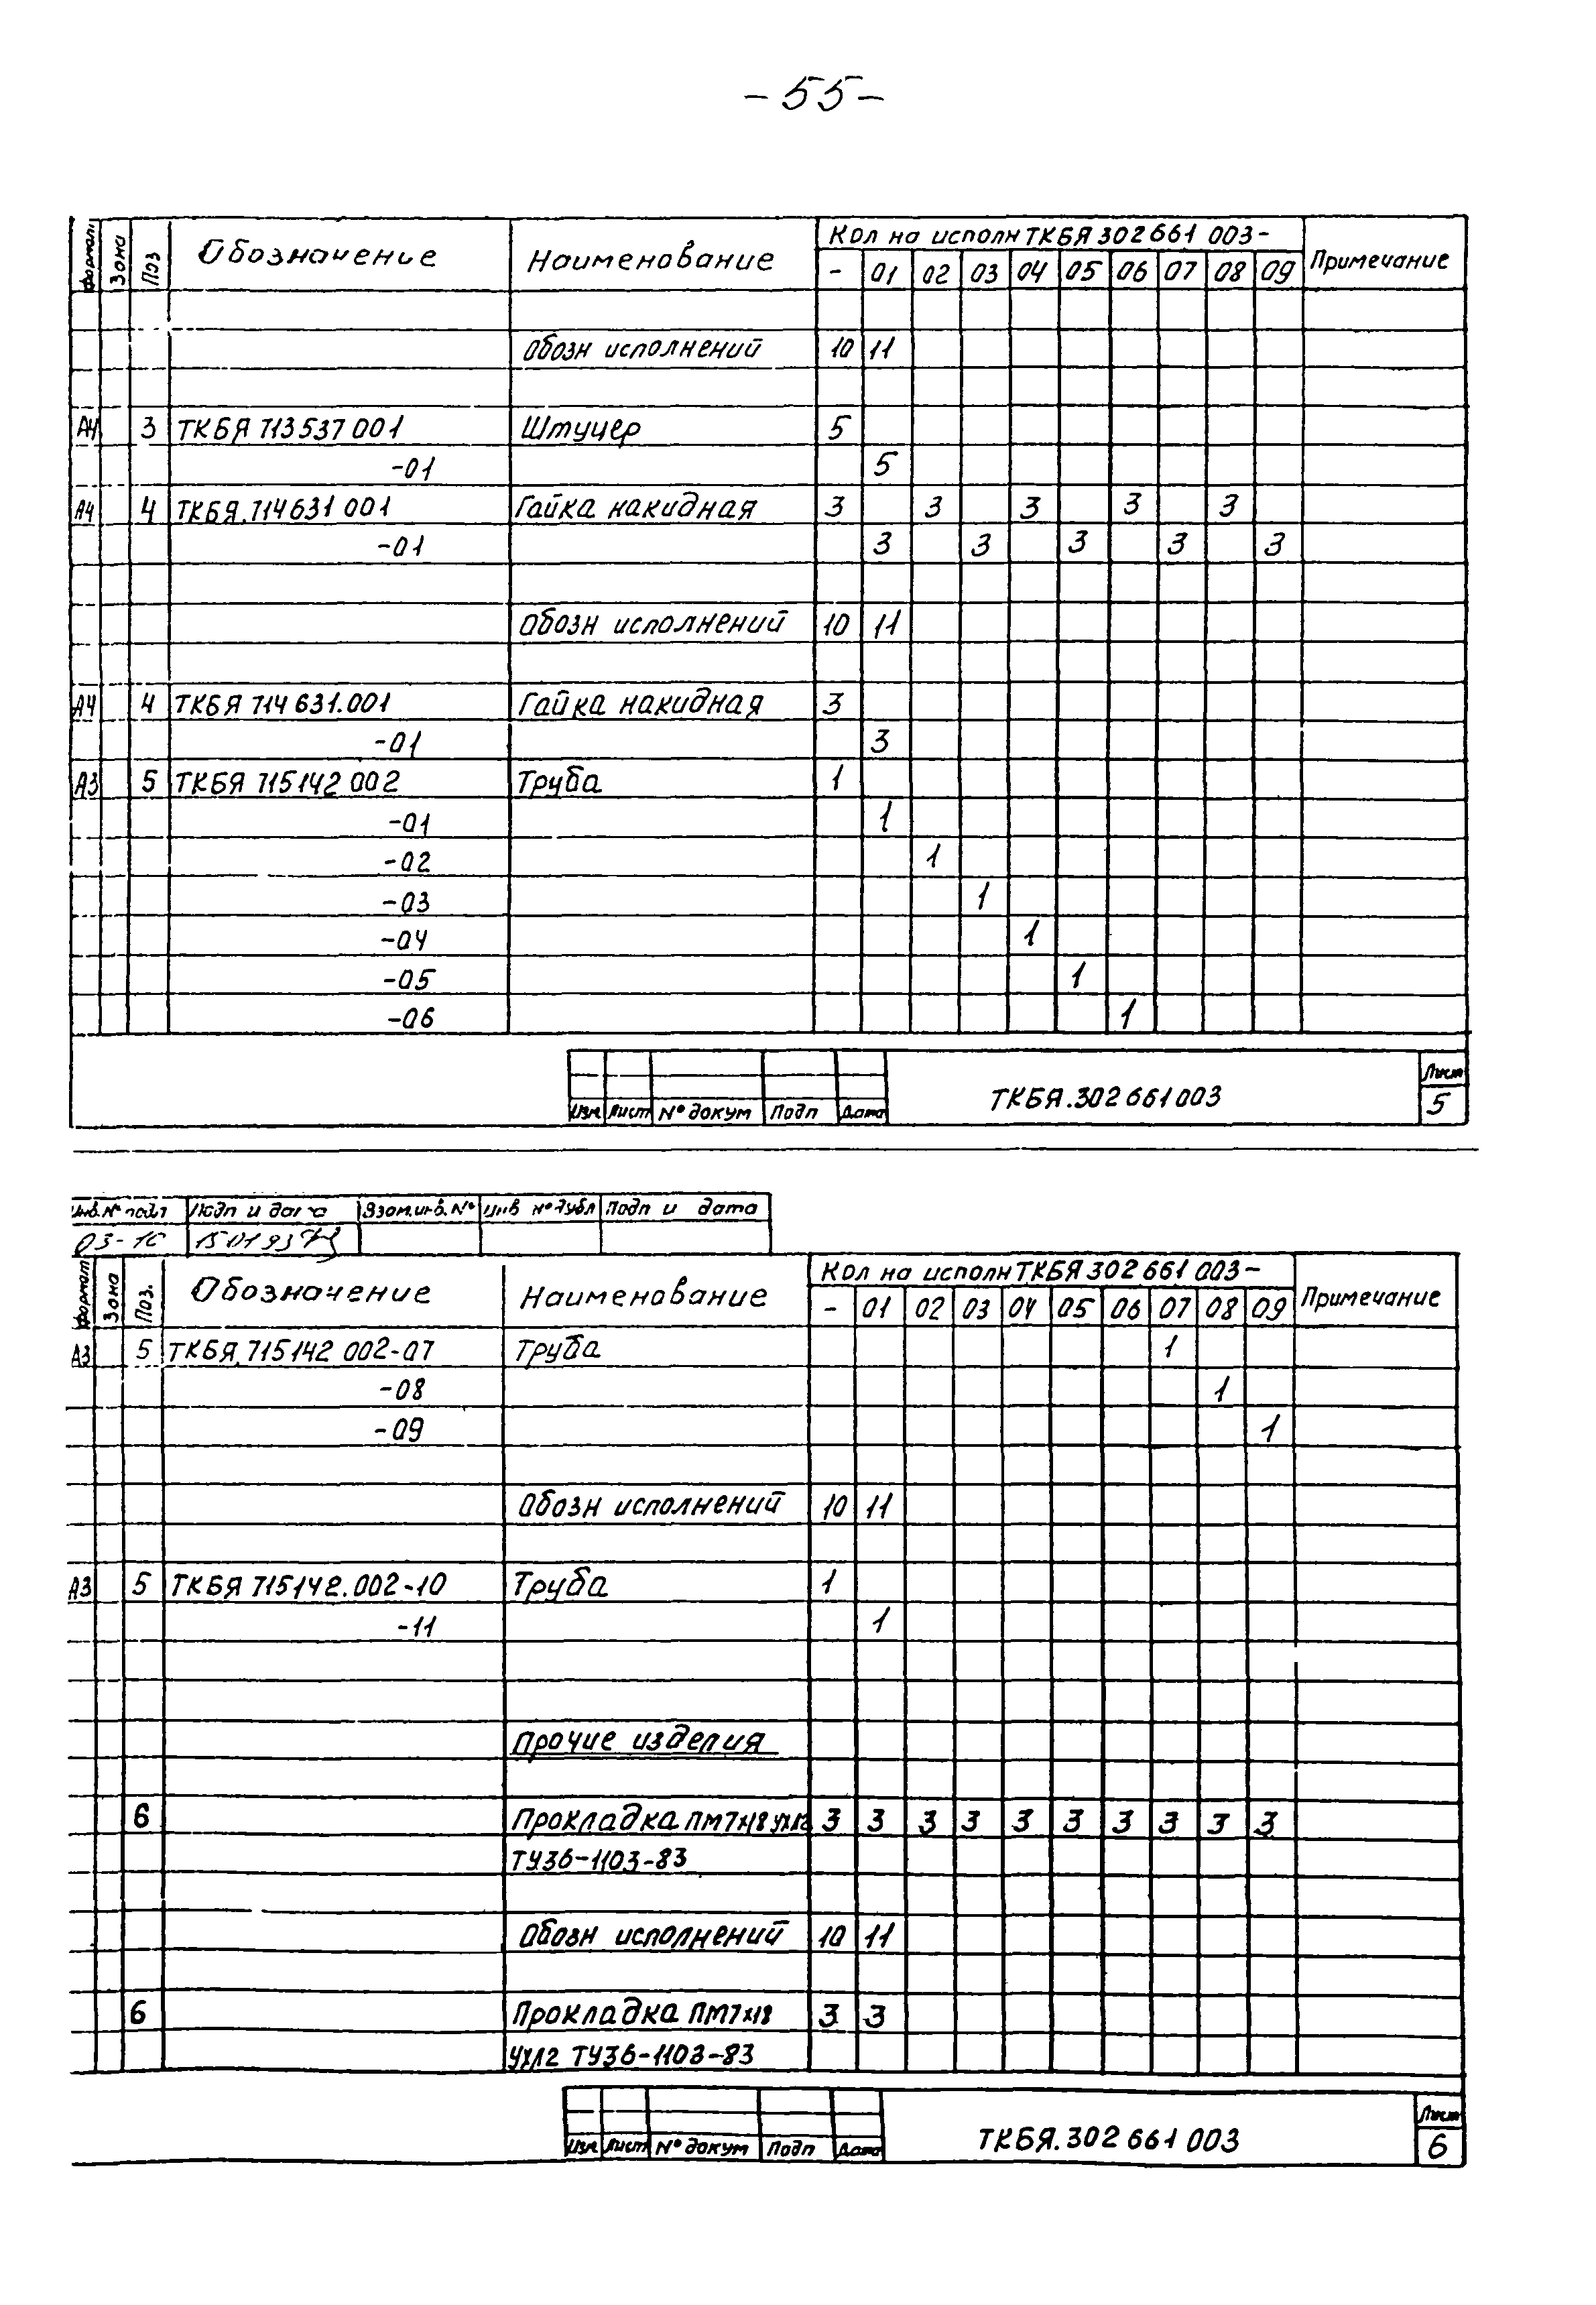 -55-
Формат Зона Поз Обозначение Наименование Кол на исполн ТКБЯ 302661 003- Примечание
- 01 02 03 04 05 06 07 08 09
Обозн исполнений 10 11
А4 3 ТКБЯ 713537 001 Штуцер 5
-01 5
А4 4 ТКБЯ.714631 001 Гайка накидная 3 3 3 3 3
-01 3 3 3 3 3
Обозн исполнений 10 11
А4 4 ТКБЯ 714 631.001 Гайка накидная 3
-01 3
А3 5 ТКБЯ 715142 002 Труба 1
-01 1
-02 1
-03 1
-04 1
-05 1
-06 1
Изм Лист № докум Подп Дата ТКБЯ.302 661 003 Лист
5
Инв.№ подл Подп и дата Взам.инв.№ Инв № дубл Подп и дата
03-10
Формат Зона Поз. Обозначение Наименование Кол на исполн ТКБЯ 302 661 003- Примечание
- 01 02 03 04 05 06 07 08 09
А3 5 ТКБЯ.715142 002-07 Труба 1
-08 1
-09 1
Обозн исполнений 10 11
А3 5 ТКБЯ 715142.002-10 Труба 1
-11 1
Прочие изделия
6 Прокладка ПМ7х18 УХЛ2 3 3 3 3 3 3 3 3 3 3
ТУ36-1103-83
Обозн исполнений 10 11
6 Прокладка ПМ7х18 3 3
УХЛ2 ТУ36-1103-83
Изм Лист № докум Подп Дата ТКБЯ.302 661 003 Лист
6